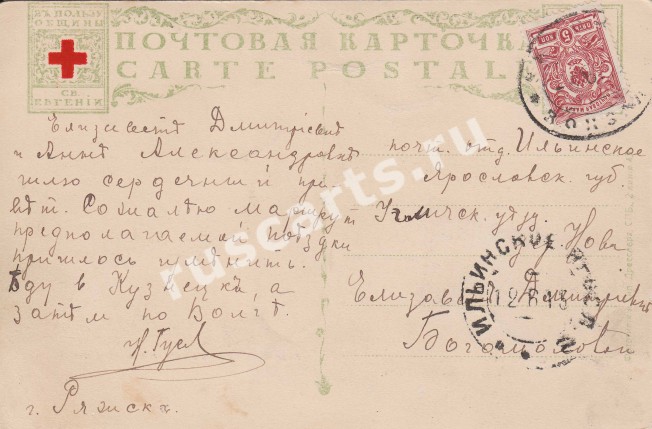 ВЪ ПОЛЬЗУ
ОБЩИНЫ
СВ.
ЕВГЕНІИ
ПОЧТОВАЯ КАРТОЧКА
CARTE POSTALE
5
КОП
ВОКЗАЛ
Елизаветѣ Дмитріевнѣ
и Аннѣ Александровнѣ
шлю сердечный при-
вѣт. Сожалѣю маршрут
предполагаемой поѣздки
пришлось измѣнить.
Ѣду в Кузнецкъ, а
затѣм по Волгѣ.
г. Ряжскъ.
почт. отд. Ильинское
Ярославск. губ.
Угличск. уѣзд.
Елизаветѣ Дмитріевнѣ
Боголюбовой
ИЛЬИНСКОЕ
12 8 13
ruscarts.ru